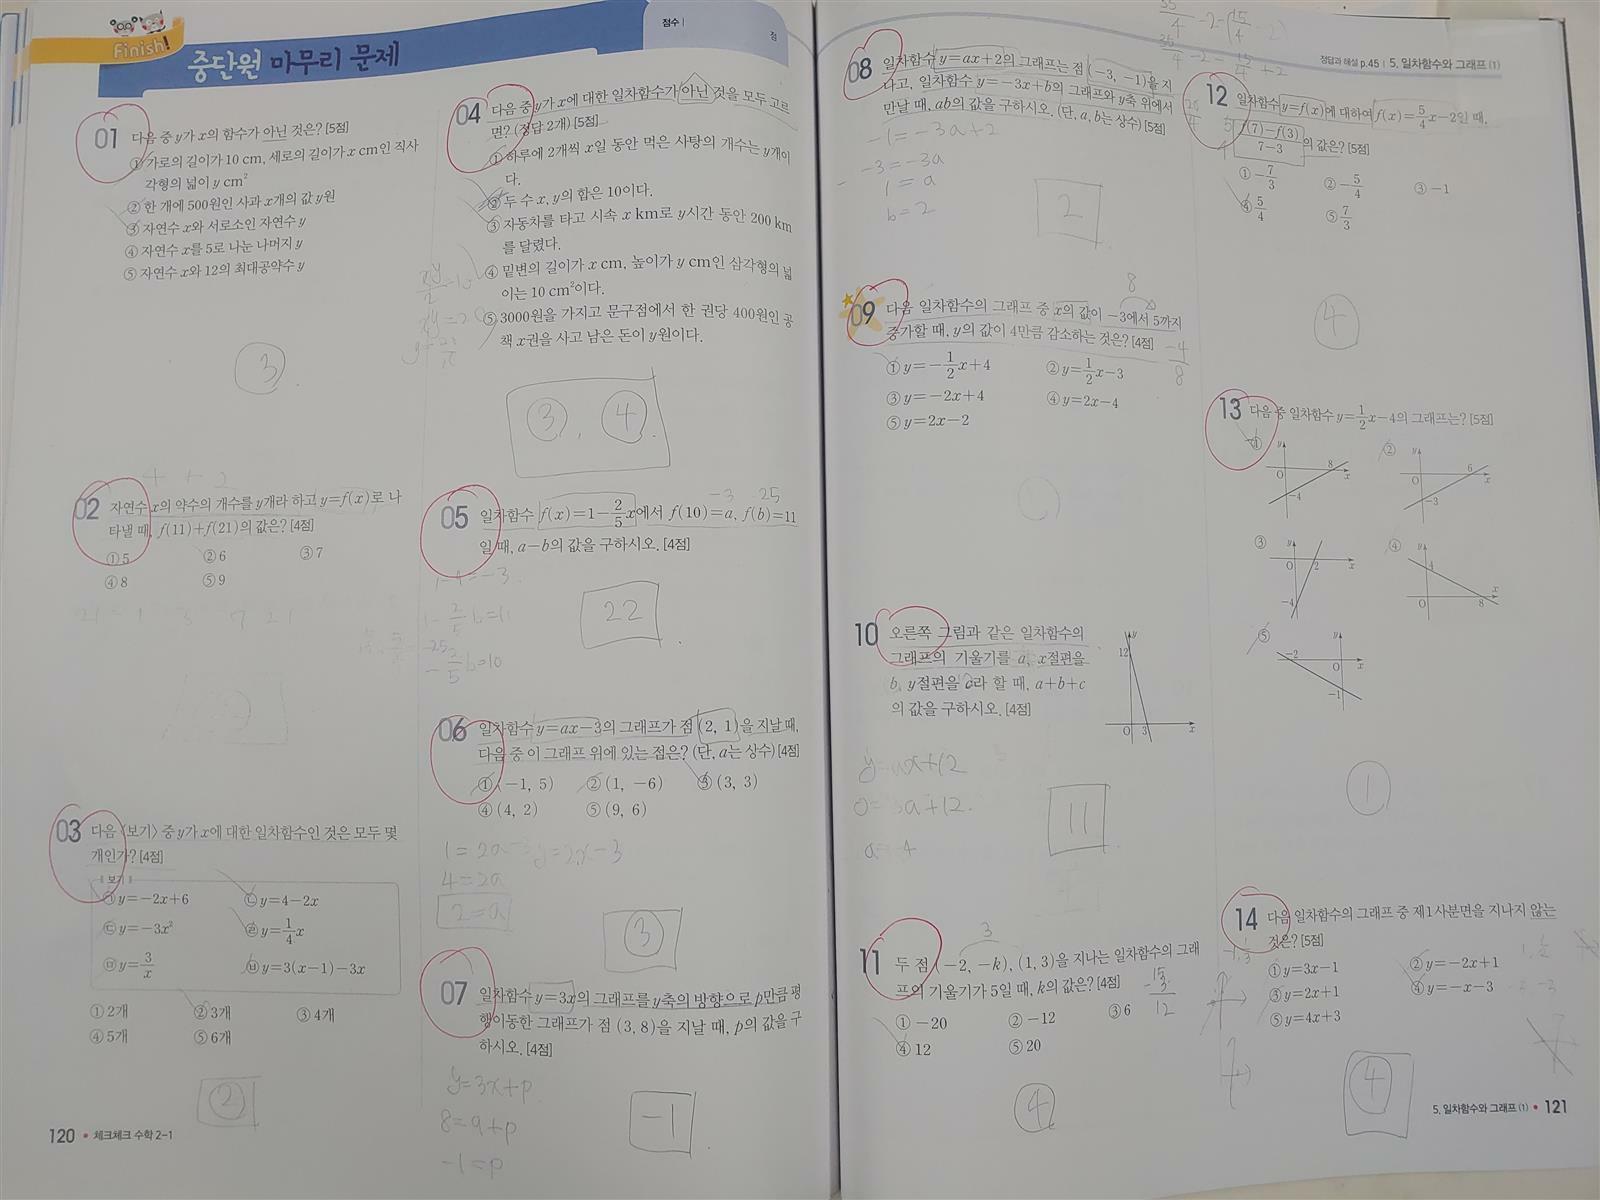 Finish!
중단원 마무리 문제
점수 |
점
01 다음 중 y가 x의 함수가 아닌 것은? [5점]
① 가로의 길이가 10 cm, 세로의 길이가 x cm인 직사
각형의 넓이 y cm²
② 한 개에 500원인 사과 x개의 값 y원
③ 자연수 x와 서로소인 자연수 y
④ 자연수 x를 5로 나눈 나머지 y
⑤ 자연수 x와 12의 최대공약수 y
③
4 + 2
02 자연수 x의 약수의 개수를 y개라 하고 y=f(x)로 나
타낼 때, f(11)+f(21)의 값은? [4점]
① 5 ② 6 ③ 7
④ 8 ⑤ 9
21 = 1 3 7 21
03 다음 〈보기〉 중 y가 x에 대한 일차함수인 것은 모두 몇
개인가? [4점]
보기
㉠ y=-2x+6 ㉡ y=4-2x
㉢ y=-3x² ㉣ y=1/4x
㉤ y=3/x ㉥ y=3(x-1)-3x
① 2개 ② 3개 ③ 4개
④ 5개 ⑤ 6개
②
120 • 체크체크 수학 2-1
04 다음 중 y가 x에 대한 일차함수가 아닌 것을 모두 고르
면? (정답 2개) [5점]
① 하루에 2개씩 x일 동안 먹은 사탕의 개수는 y개이
다.
② 두 수 x, y의 합은 10이다.
③ 자동차를 타고 시속 x km로 y시간 동안 200 km
를 달렸다.
④ 밑변의 길이가 x cm, 높이가 y cm인 삼각형의 넓
이는 10 cm²이다.
⑤ 3000원을 가지고 문구점에서 한 권당 400원인 공
책 x권을 사고 남은 돈이 y원이다.
xy/2=10
③, ④
-3 -25
05 일차함수 f(x)=1-2/5x에서 f(10)=a, f(b)=11
일 때, a-b의 값을 구하시오. [4점]
1-4=-3
1-2/5b=11
-2/5b=10
22
06 일차함수 y=ax-3의 그래프가 점 (2, 1)을 지날 때,
다음 중 이 그래프 위에 있는 점은? (단, a는 상수) [4점]
① (-1, 5) ② (1, -6) ③ (3, 3)
④ (4, 2) ⑤ (9, 6)
1=2a-3 y=2x-3
4=2a
2=a
③
07 일차함수 y=3x의 그래프를 y축의 방향으로 p만큼 평
행이동한 그래프가 점 (3, 8)을 지날 때, p의 값을 구
하시오. [4점]
y=3x+p
8=9+p
-1=p
-1
정답과 해설 p.45 | 5. 일차함수와 그래프 (1)
08 일차함수 y=ax+2의 그래프는 점 (-3, -1)을 지
나고, 일차함수 y=-3x+b의 그래프와 y축 위에서
만날 때, ab의 값을 구하시오. (단, a, b는 상수) [5점]
-1=-3a+2
-3=-3a
1=a
b=2
2
8
09 다음 일차함수의 그래프 중 x의 값이 -3에서 5까지
증가할 때, y의 값이 4만큼 감소하는 것은? [4점]
-4/8
① y=-1/2x+4 ② y=1/2x-3
③ y=-2x+4 ④ y=2x-4
⑤ y=2x-2
10 오른쪽 그림과 같은 일차함수의
그래프의 기울기를 a, x절편을
b, y절편을 c라 할 때, a+b+c
의 값을 구하시오. [4점]
y
12
O 3 x
y=ax+12
0=3a+12
11
3
11 두 점 (-2, -k), (1, 3)을 지나는 일차함수의 그래
프의 기울기가 5일 때, k의 값은? [4점]
① -20 ② -12 ③ 6
④ 12 ⑤ 20
15
-3
12
④
35/4-2-(15/4-2)
35/4-2-15/4+2
12 일차함수 y=f(x)에 대하여 f(x)=5/4x-2일 때,
f(7)-f(3)/7-3의 값은? [5점]
① -7/3 ② -5/4 ③ -1
④ 5/4 ⑤ 7/3
④
13 다음 중 일차함수 y=1/2x-4의 그래프는? [5점]
① y O 8 x -4
② y O 6 x -3
③ y O 2 x -4
④ y 4 O 8 x
⑤ y -2 O x -1
①
14 다음 일차함수의 그래프 중 제1사분면을 지나지 않는
것은? [5점]
① y=3x-1 ② y=-2x+1
③ y=2x+1 ④ y=-x-3
⑤ y=4x+3
④
5. 일차함수와 그래프 (1) • 121